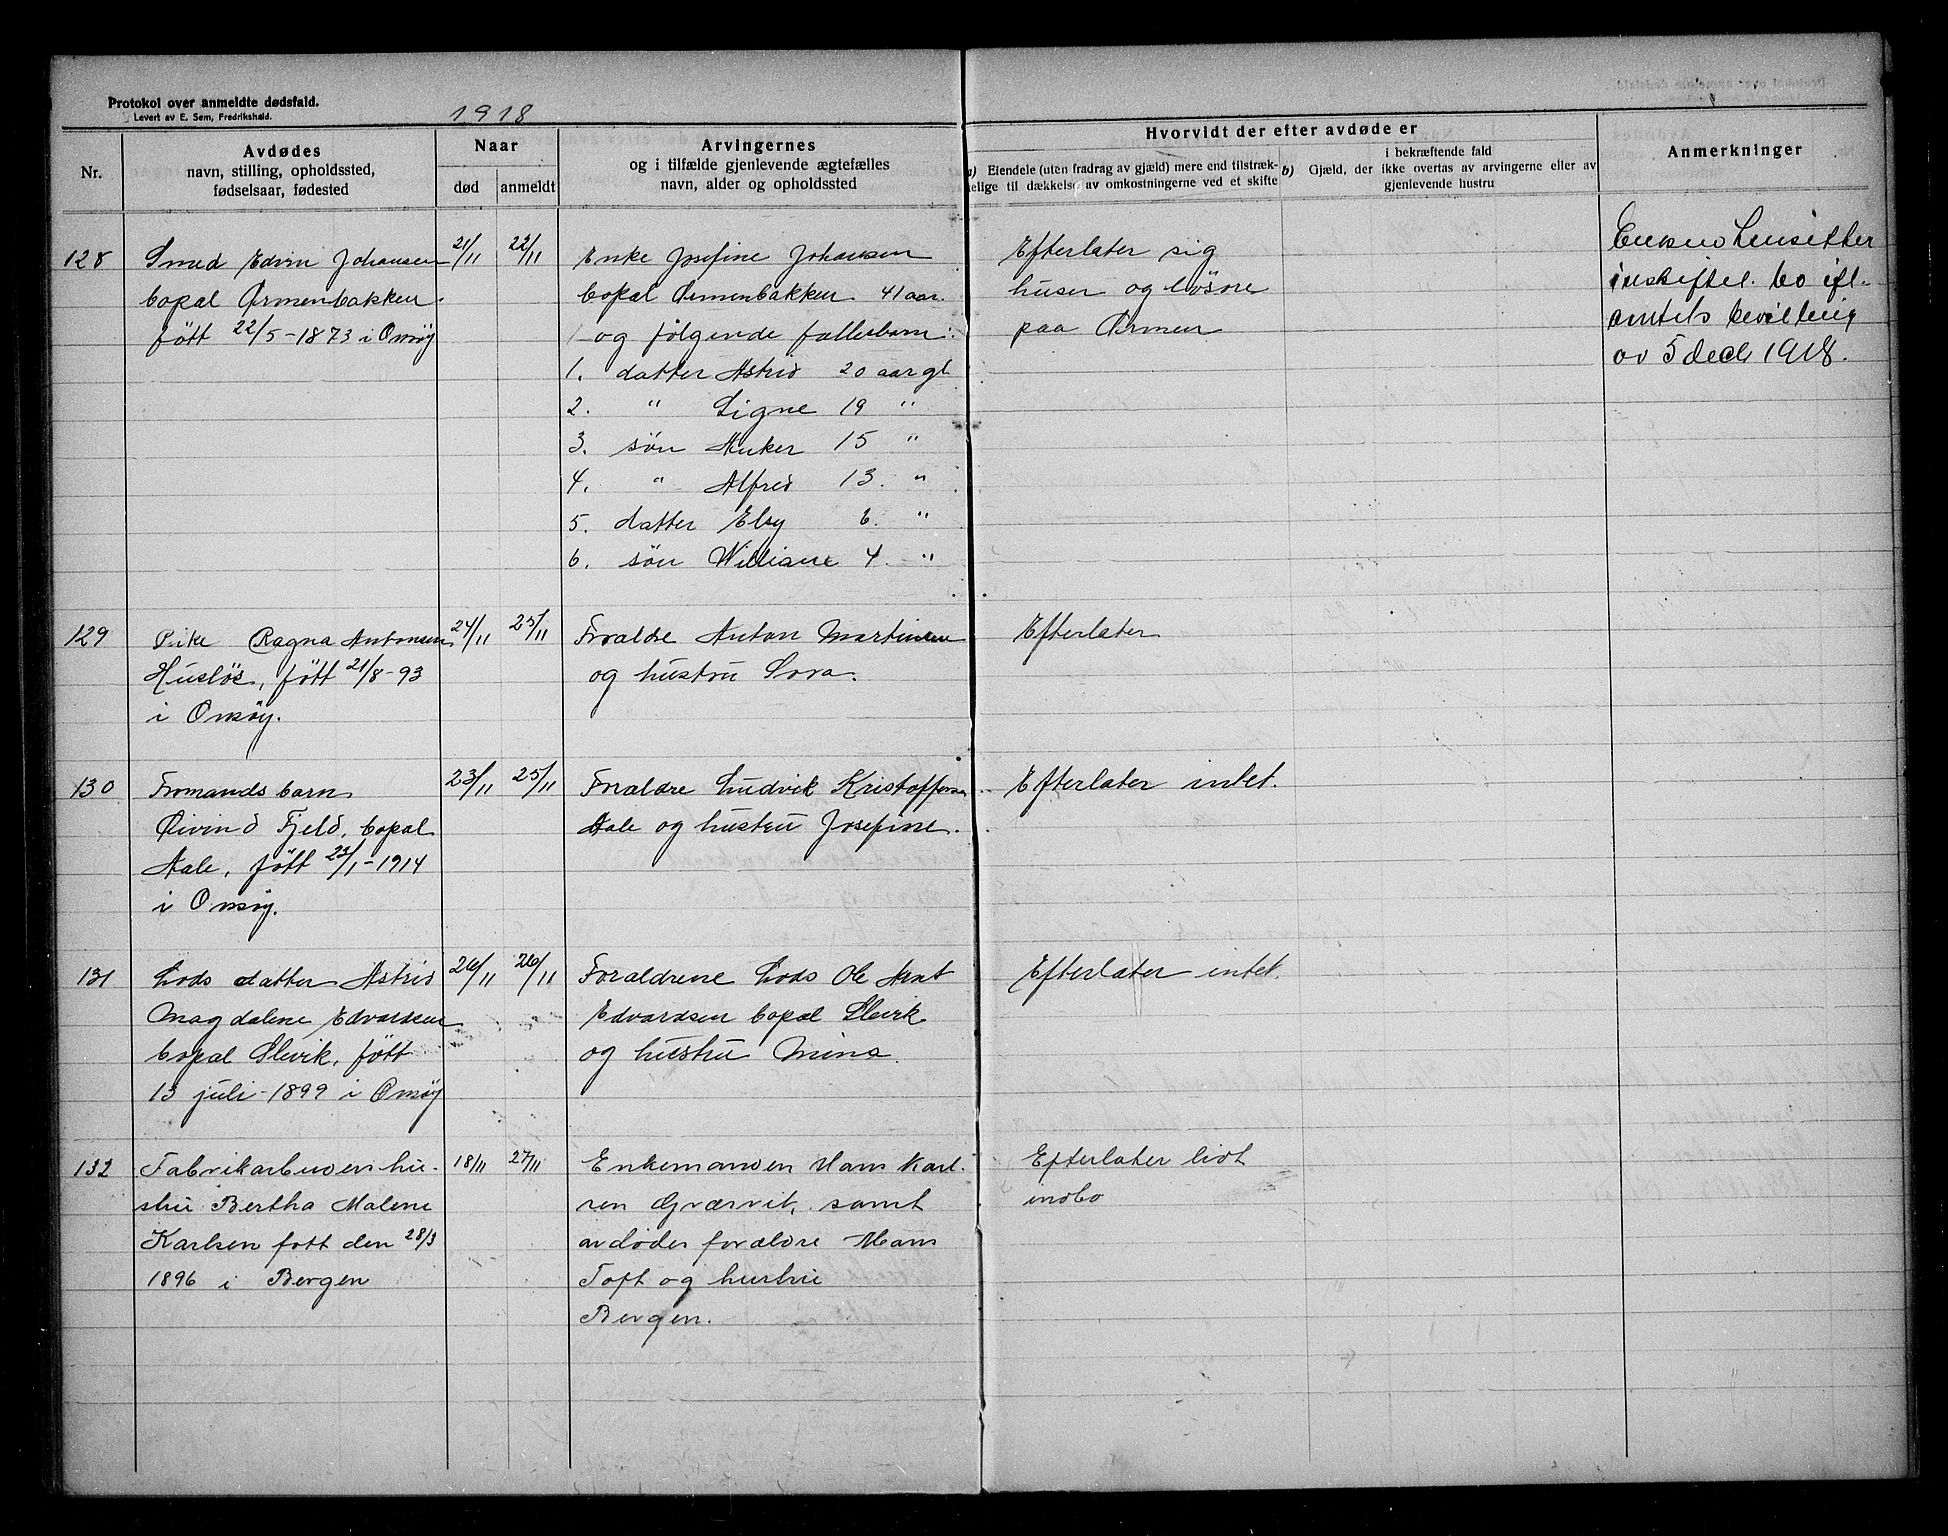 Protokol over anmeldte dødsfald.
Levert av E. Sem, Fredrikshald.
1918
Nr.
Avdødes
navn, stilling, opholdssted,
fødselsaar, fødested
Naar
død
anmeldt
Arvingernes
og i tilfælde gjenlevende ægtefælles
navn, alder og opholdssted
Hvorvidt der efter avdøde er
a) Eiendele (uten fradrag av gjæld) mere end tilstræk-
kelige til dækkelse av omkostningerne ved et skifte
i bekræftende fald
b) Gjæld, der ikke overtas av arvingerne eller av
gjenlevende hustru
Anmerkninger
128
Smed Edvin Johansen
bopæl Ørmenbakken
født 22/5-1873 i Onsøy
21/11
22/11
Enke Josefine Johansen
bopæl Ørmenbakken 41 aar.
og følgende fællesbarn:
1. datter Astrid 20 aar gl
2. " Signe 19 "
3. søn Anker 15 "
4. " Alfred 13. "
5. datter Elsy 6. "
6. søn William 4. "
Efterlater sig
huser og løsøre
paa Ørmen
Enken hensitter
i uskiftet bo ifl.
amtets bevilling
av 5 dec 1918.
129
Pike Ragna Antonsen
Husløs, født 21/8-93
i Onsøy.
24/11
25/11
Forældre Anton Martinsen
og hustru Lova.
Efterlater
130
Formands barn
Øivind Fjeld, bopæl
Aale, født 23/1-1914
i Onsøy.
23/11
25/11
Forældre Ludvik Kristoffersen
Aale og hustru Josefine.
Efterlater intet.
131
Lods datter Astrid
Magdalene Edvardsen
bopæl Slevik, født
13 juli-1899 i Onsøy
26/11
26/11
Forældrene Lods Ole Arnt
Edvardsen bopæl Slevik
og hustru Mina.
Efterlater intet.
132
Fabrikarbeiders hu-
stru Bertha Malene
Karlsen født den 28/3
1896 i Bergen
18/11
27/11
Enkemanden Hans Karl-
sen Græsvik, samt
avdødes forældre Hans
Toft og hustru
Bergen.
Efterlater lidt
indbo